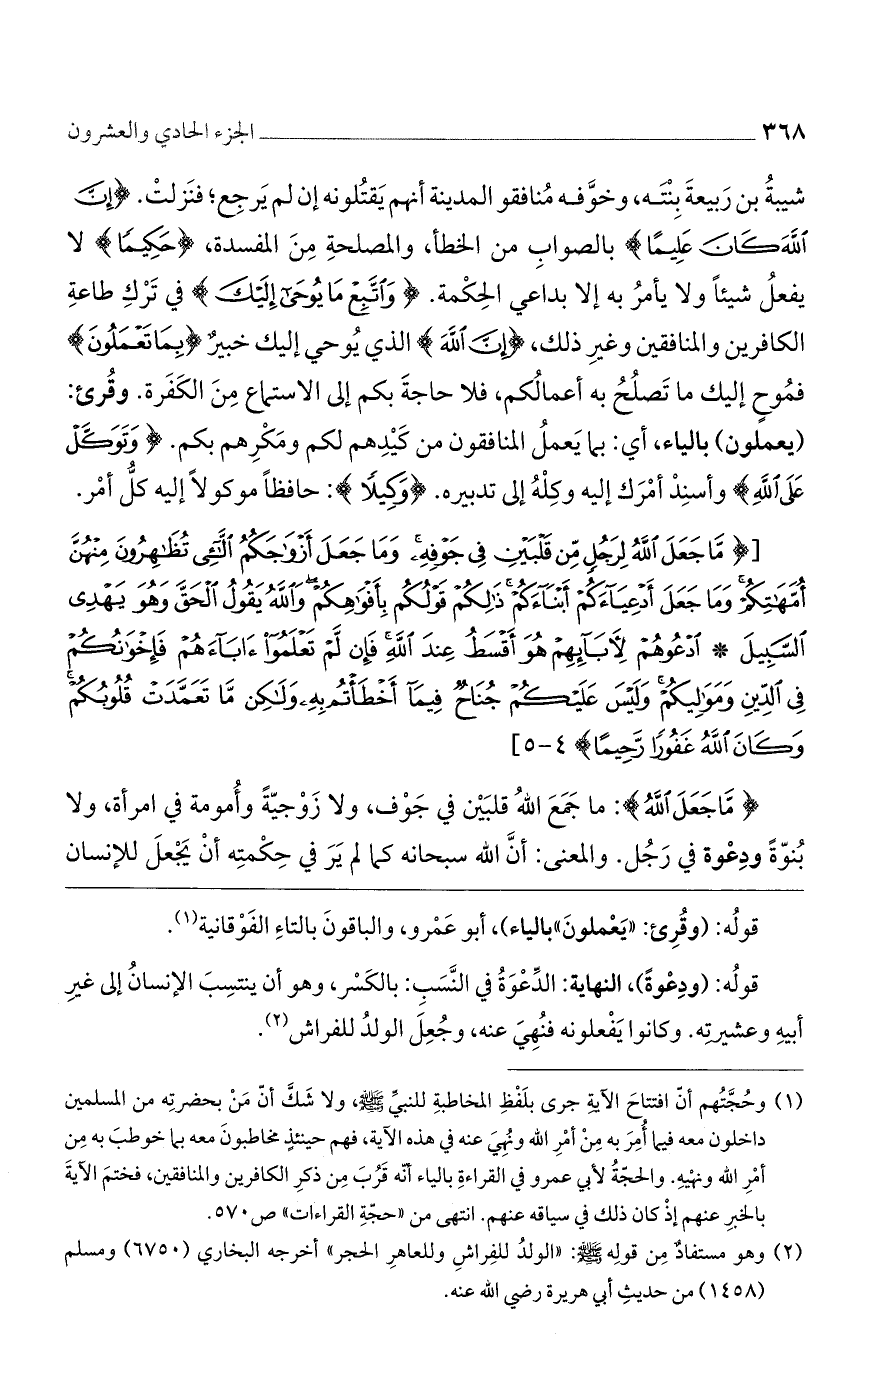 ٣٦٨ ــــــــــــــــــــــــــــــــ الجزء الحادي والعشرون
شيبةُ بن رَبيعةَ بِنْتَـه، وخوَّفـه مُنافقو المدينة أنهم يَقتُلونه إن لم يَرجِع؛ فنَزلتْ. ﴿إِنَّ
ٱللَّهَ كَانَ عَلِيمًا﴾ بالصوابِ من الخطأ، والمصلحةِ مِنَ المفسدة، ﴿حَكِيمًا﴾ لا
يفعلُ شيئاً ولا يأمرُ به إلا بداعي الحِكْمة. ﴿وَٱتَّبِعْ مَا يُوحَىٰٓ إِلَيْكَ﴾ في تَرْكِ طاعةِ
الكافرين والمنافقين وغيرِ ذلك، ﴿إِنَّ ٱللَّهَ﴾ الذي يُوحي إليك خبيرٌ ﴿بِمَا تَعْمَلُونَ﴾
فمُوحٍ إليك ما تَصلُحُ به أعمالُكم، فلا حاجةَ بكم إلى الاستماع مِنَ الكَفَرة. وقُرئ:
(يعملون) بالياء، أي: بما يَعملُ المنافقون من كَيْدِهم لكم ومَكْرِهم بكم. ﴿وَتَوَكَّلْ
عَلَى ٱللَّهِ﴾ وأسنِدْ أمْرَك إليه وكِلْهُ إلى تدبيره. ﴿وَكِيلًا﴾: حافظاً موكولاً إليه كلُّ أمْر.
[﴿مَّا جَعَلَ ٱللَّهُ لِرَجُلٍ مِّن قَلْبَيْنِ فِى جَوْفِهِۦ ۚ وَمَا جَعَلَ أَزْوَٰجَكُمُ ٱلَّٰٓـِٔى تُظَٰهِرُونَ مِنْهُنَّ
أُمَّهَٰتِكُمْ ۚ وَمَا جَعَلَ أَدْعِيَآءَكُمْ أَبْنَآءَكُمْ ۚ ذَٰلِكُمْ قَوْلُكُم بِأَفْوَٰهِكُمْ ۖ وَٱللَّهُ يَقُولُ ٱلْحَقَّ وَهُوَ يَهْدِى
ٱلسَّبِيلَ * ٱدْعُوهُمْ لِءَابَآئِهِمْ هُوَ أَقْسَطُ عِندَ ٱللَّهِ ۚ فَإِن لَّمْ تَعْلَمُوٓا۟ ءَابَآءَهُمْ فَإِخْوَٰنُكُمْ
فِى ٱلدِّينِ وَمَوَٰلِيكُمْ ۚ وَلَيْسَ عَلَيْكُمْ جُنَاحٌ فِيمَآ أَخْطَأْتُم بِهِۦ وَلَٰكِن مَّا تَعَمَّدَتْ قُلُوبُكُمْ ۚ
وَكَانَ ٱللَّهُ غَفُورًا رَّحِيمًا﴾ ٤-٥]
﴿مَّا جَعَلَ ٱللَّهُ﴾: ما جَمَعَ اللهُ قلبَيْن في جَوْف، ولا زَوْجيّةً وأُمومة في امرأة، ولا
بُنوّةً ودِعْوة في رَجُل. والمعنى: أنَّ الله سبحانه كما لم يَرَ في حِكْمتِه أنْ يَجْعلَ للإنسان
قولُه: (وقُرِئ: «يَعْملونَ» بالياء)، أبو عَمْرو، والباقونَ بالتاءِ الفَوْقانية(١).
قولُه: (ودِعْوةً)، النهاية: الدِّعْوَةُ في النَّسَبِ: بالكَسْر، وهو أن ينتسِبَ الإنسانُ إلى غيرِ
أبيهِ وعشيرتِه. وكانوا يَفْعلونه فنُهِيَ عنه، وجُعِلَ الولدُ للفراش(٢).
(١) وحُجَّتُهم أنّ افتتاحَ الآيةِ جرى بلَفْظِ المخاطبةِ للنبيِّ ﷺ، ولا شَكَّ أنّ مَنْ بحضرتِه من المسلمين
داخلون معه فيما أُمِرَ به مِنْ أمْرِ الله ونُهِيَ عنه في هذه الآية، فهم حينئذٍ مخاطبونَ معه بما خوطبَ به مِن
أمْرِ الله ونهْيِه. والحجّةُ لأبي عمرو في القراءةِ بالياء أنّه قَرُبَ مِن ذكرِ الكافرين والمنافقين، فختمَ الآيةَ
بالخبرِ عنهم إذْ كان ذلك في سياقه عنهم. انتهى من «حجّةِ القراءات» ص٥٧٠.
(٢) وهو مستفادٌ مِن قولِه ﷺ: «الولدُ للفِراشِ وللعاهرِ الحجر» أخرجه البخاري (٦٧٥٠) ومسلم
(١٤٥٨) من حديثِ أبي هريرة رضي الله عنه.